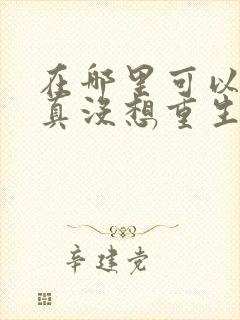 在哪里可以
真没想重生
辛建党